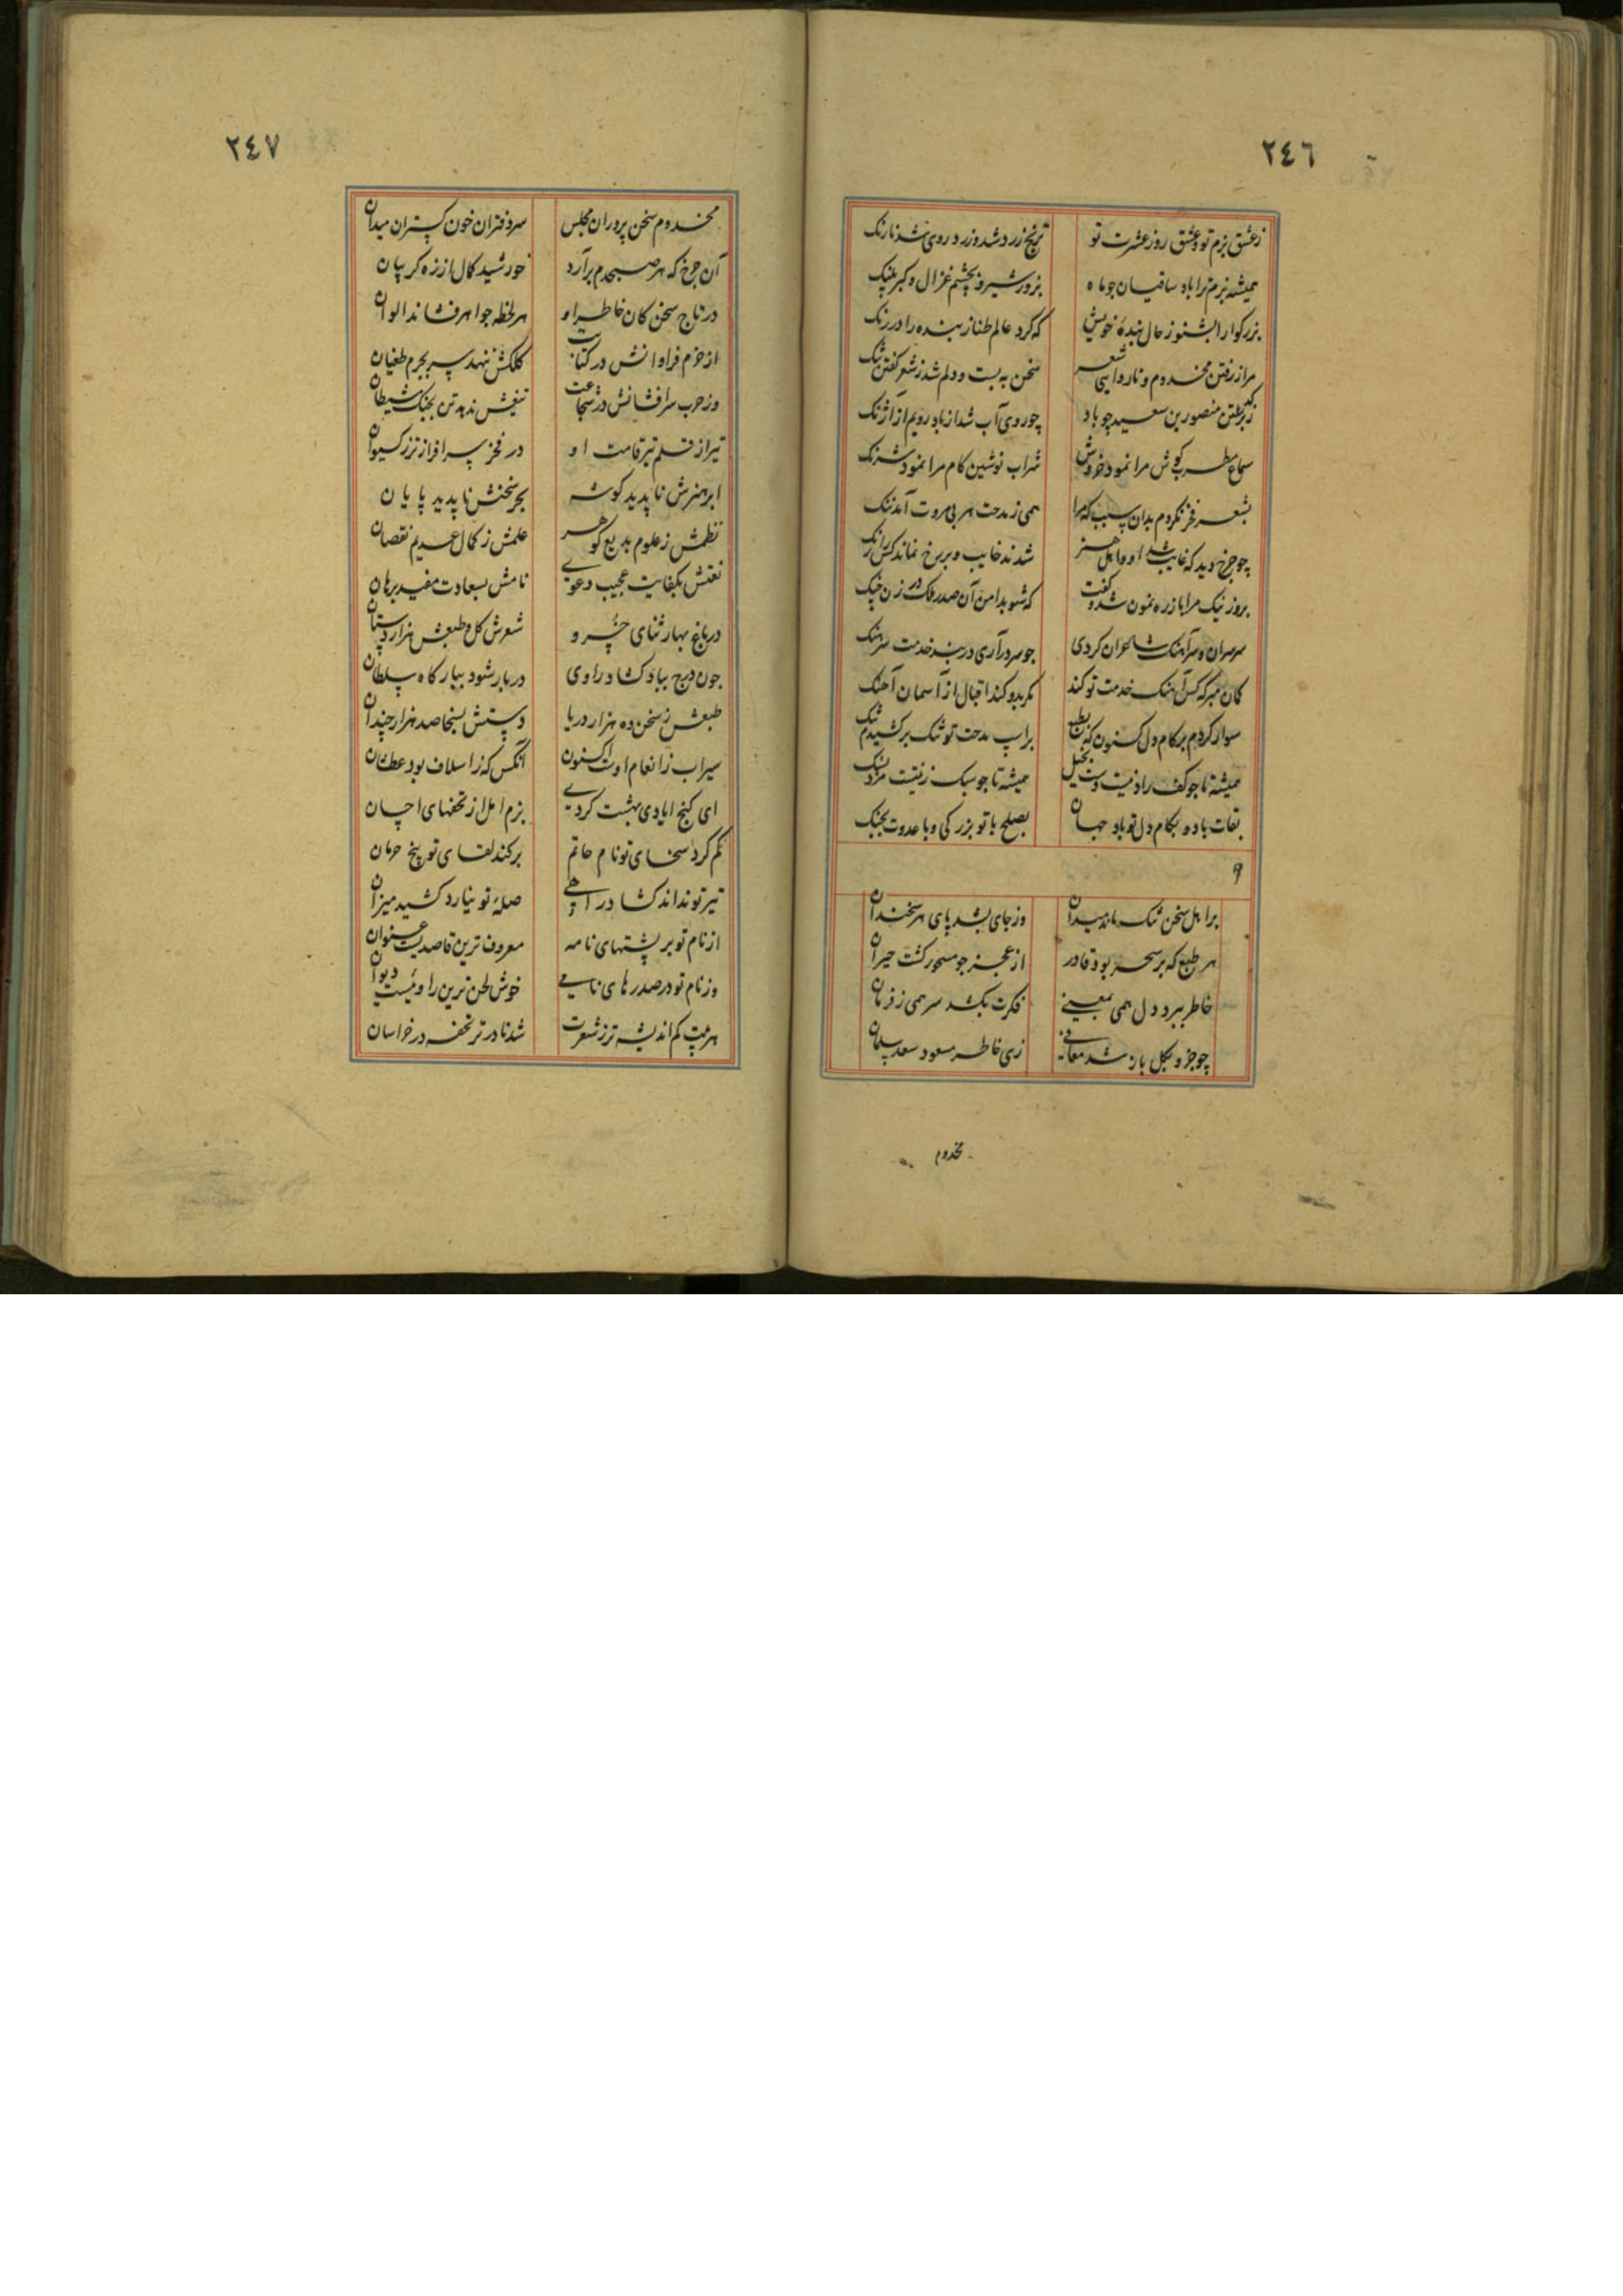 ٢٤٦
زعشق بزم تو وعشق روز عشرت تو ترنج زرد شد و زرد روی شد نارنک
همیشه بزم ترا باد ساقیان جو ماه بزور شیر و بچشم غزال و کبر پلنک
بزرکوارا بشنو ز حال بنده خویش که کرد عالم طناز بنده را در رنک
مرا ز رفتن مخدوم و ناروایی شعر سخن به بست و دلم شد ز شعر کفتن تنک
منصور بن سعید چو باد چو روی آب شد از باد رویم از آژنک
سماع مطرب کوش مرا نمود خروش شراب نوشین کام مرا نمود شرنک
بشعر فخر نکردم بدان سبب که مرا همی ز مدحت هر بی مروت آمد ننک
چو جرخ دید که غایب شد او و اهل هنر شدند خایب و بر رخ نماند کس را رنک
بروز نیک مرا باز ره نمون شد و کفت که شو بدامن آن صدر ملک در زن چنک
سر سران و سرآهنک شاعران کردی جو سر درآری در بند خدمت سرهنک
کمان مبر که کس آهنک خدمت تو کند مکر بدو کند اقبال از آسمان آهنک
سوار کردم بر کام دل کنون که بطبع بر اسپ مدحت تو تنک برکشیدم تنک
همیشه تا جو کف راد نیست دست بخیل همیشه تا جو سبک زینت مرد سنک
بقات باد و بکام دل تو باد جهان بصلح با تو بزرکی و با عدوت بجنک
و
بر اهل سخن تنک ماند میدان وز جای بشد پای هر سخندان
هر طبع که بر سحر بود قادر از عجز جو مسحور کشت حیران
خاطر نبرد دل همی بمعنی فکرت بکشد سر همی ز فرمان
چو جزو بکل باز شد معانی زی خاطر مسعود سعد سلمان
مخدوم
٢٤٧
مخدوم سخن پروران مجلس سردفتران خون کستران میدان
آن جرخ که هر صبحدم برآرد خورشید کمال از زه کریبان
در تاج سخن کان خاطر او هر لحظه جواهر فشاند الوان
از حزم فراوانش در کتابت کلکش ننهد سر بجرم طغیان
وز حرب سرافشانش در شجاعت تیغش ندهد تن بجنک شیطان
تیر از قلم تیر قامت او در فخر سرافرازتر ز کیوان
ابر هنرش ناپدید کوشه بحر سخنش ناپدید پایان
نظمش ز علوم بدیع کوهر علمش ز کمال عدیم نقصان
نعتش بکفایت عجیب دعوی نامش بسعادت مفید برهان
در باغ بهار ثنای خسرو شعرش کل و طبعش هزار دستان
جون درج بباد کشاد راوی دربار شود ببارکاه سلطان
طبعش ز سخن ده هزار دریا دستش بسخا صد هزار چندان
سیراب ز انعام اوست اکنون آنکس که ز اسلاف بود عطشان
ای کنج ایادی بهشت کردی بزم امل از تحفهای احسان
کم کرد سخای تو نام حاتم برکند لقای تو بیخ حرمان
تیر تو نداند کشاد راهی صله تو نیارد کشید میزان
از نام تو بر پشتهای نامه معروف ترین قاصدیست عنوان
وز نام تو در صدرهای نامی خوش لحن ترین راوئیست دیوان
هر بیت کم اندیشه تر ز شعرت شد نادرتر تحفه در خراسان